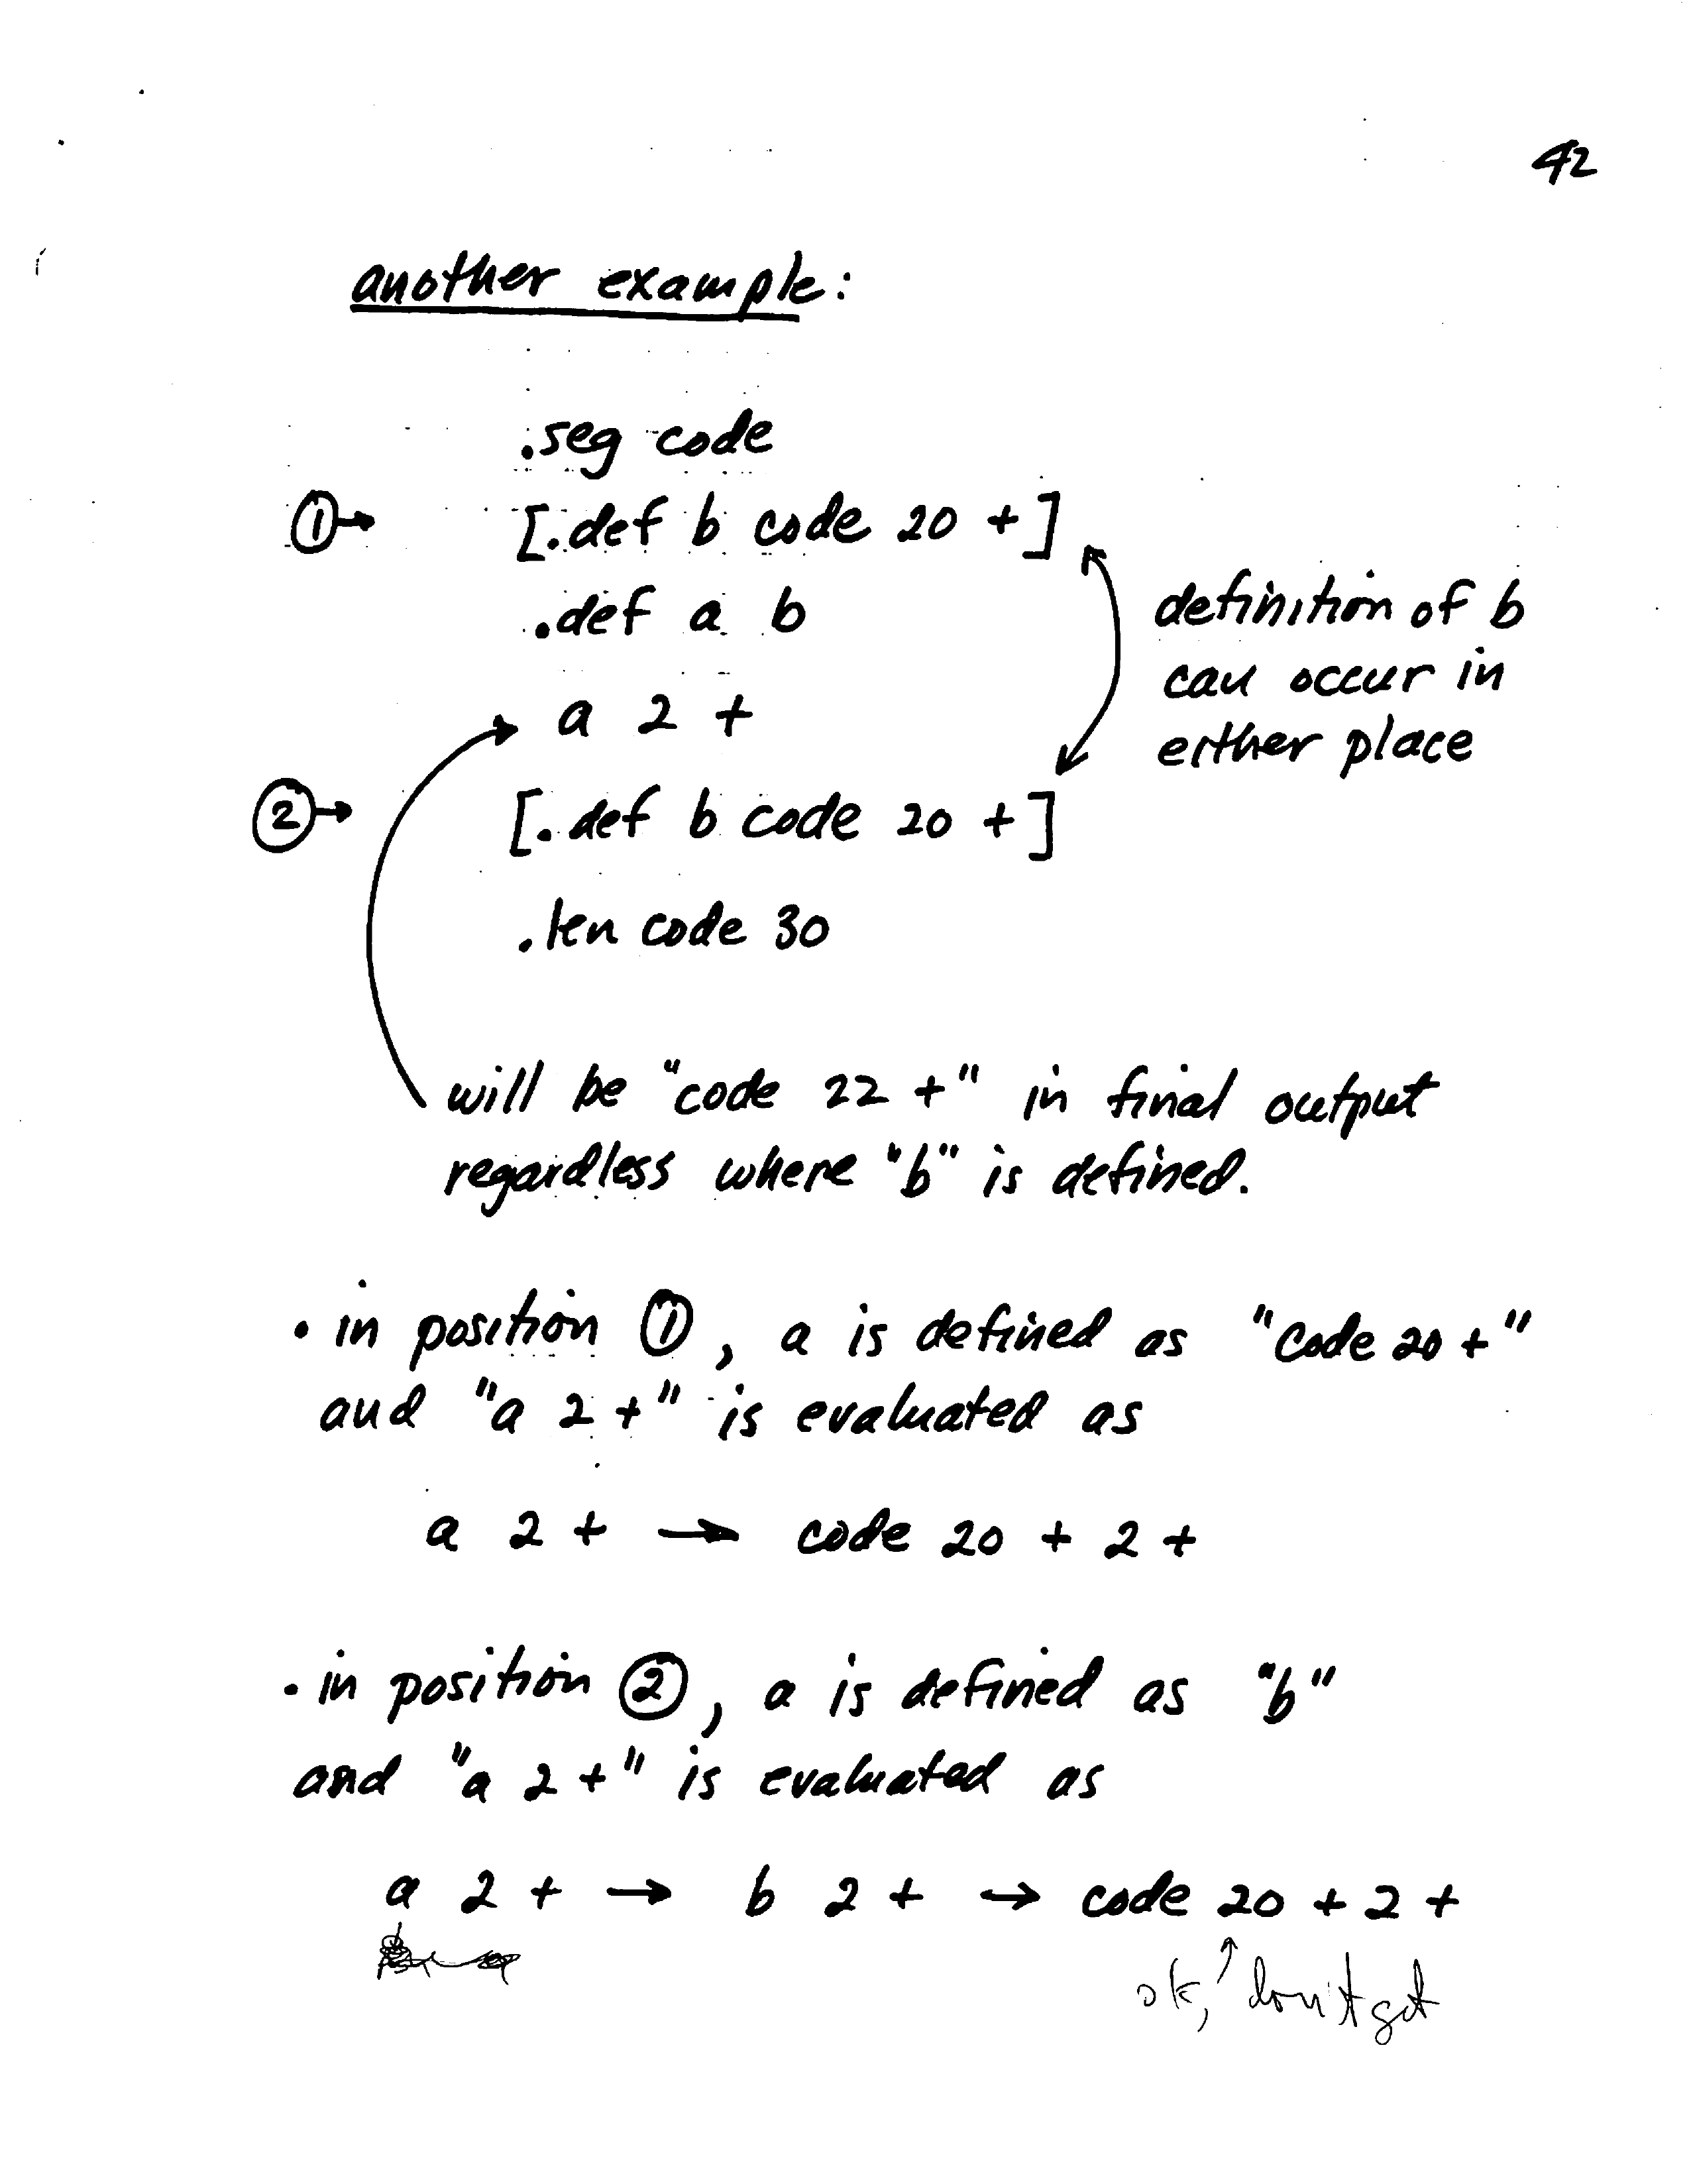 42
another example:
.seg code
①→ [.def b code 20 +]
.def a b
definition of b
can occur in
either place
a 2 +
②→ [.def b code 20 +]
.len code 30
will be "code 22 +" in final output
regardless where "b" is defined.
• in position ①, a is defined as "code 20 +"
and "a 2 +" is evaluated as
a 2 + → code 20 + 2 +
• in position ②, a is defined as "b"
and "a 2 +" is evaluated as
a 2 + → b 2 + → code 20 + 2 +
ok, don't get